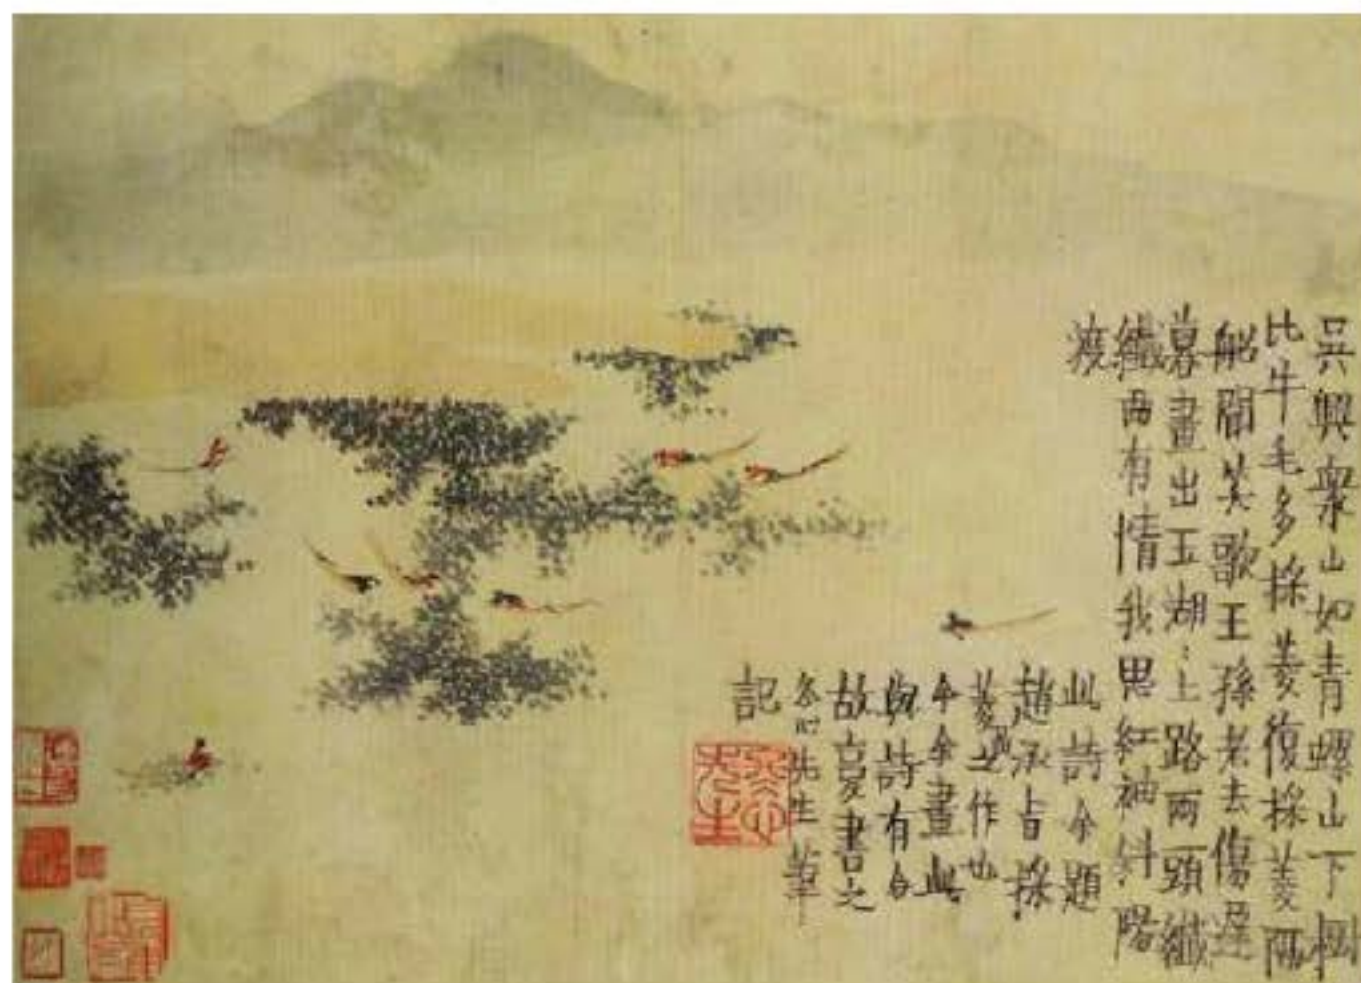 吳興衆山如青螺山下樹
比牛毛多採菱復採菱隔
船聞笑歌王孫老去傷遲
暮畫出玉湖:上路兩頭纖
纖曲有情我思紅袖斜陽
渡
此詩余題
趙承旨採
菱圖之作也
今余畫此
與詩有合
故更書之
冬心先生筆
記
冬心先生